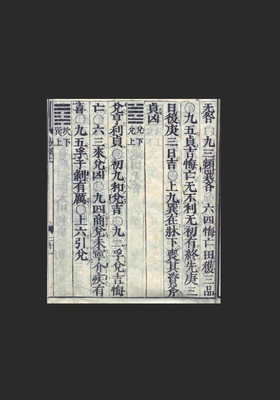 无咎○九三頻巽吝○六四悔亡田獲三品
○九五貞吉悔亡无不利无初有終先庚三
日後庚三日吉○上九巽在牀下喪其資斧
貞凶
兌下
兌上
兌亨利貞○初九和兌吉○九二孚兌吉悔
亡○六三來兌凶○九四商兌未寧介疾有
喜○九五孚于剝有厲○上六引兌
坎下
巽上